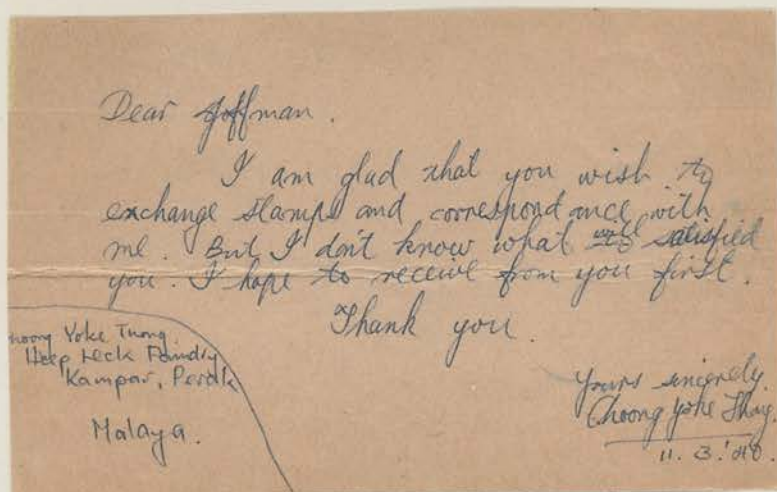 Dear Joffman.
I am glad that you wish to
exchange stamps and coorespondance with
me. But I don't know what will satisfied
you. I hope to receive from you first.
Thank you.
Yours sincerely,
Choong Yoke
11. 3. '40.
Choong Yoke Tuong
Heep Heck Foundry
Kampar, Perak
Malaya.